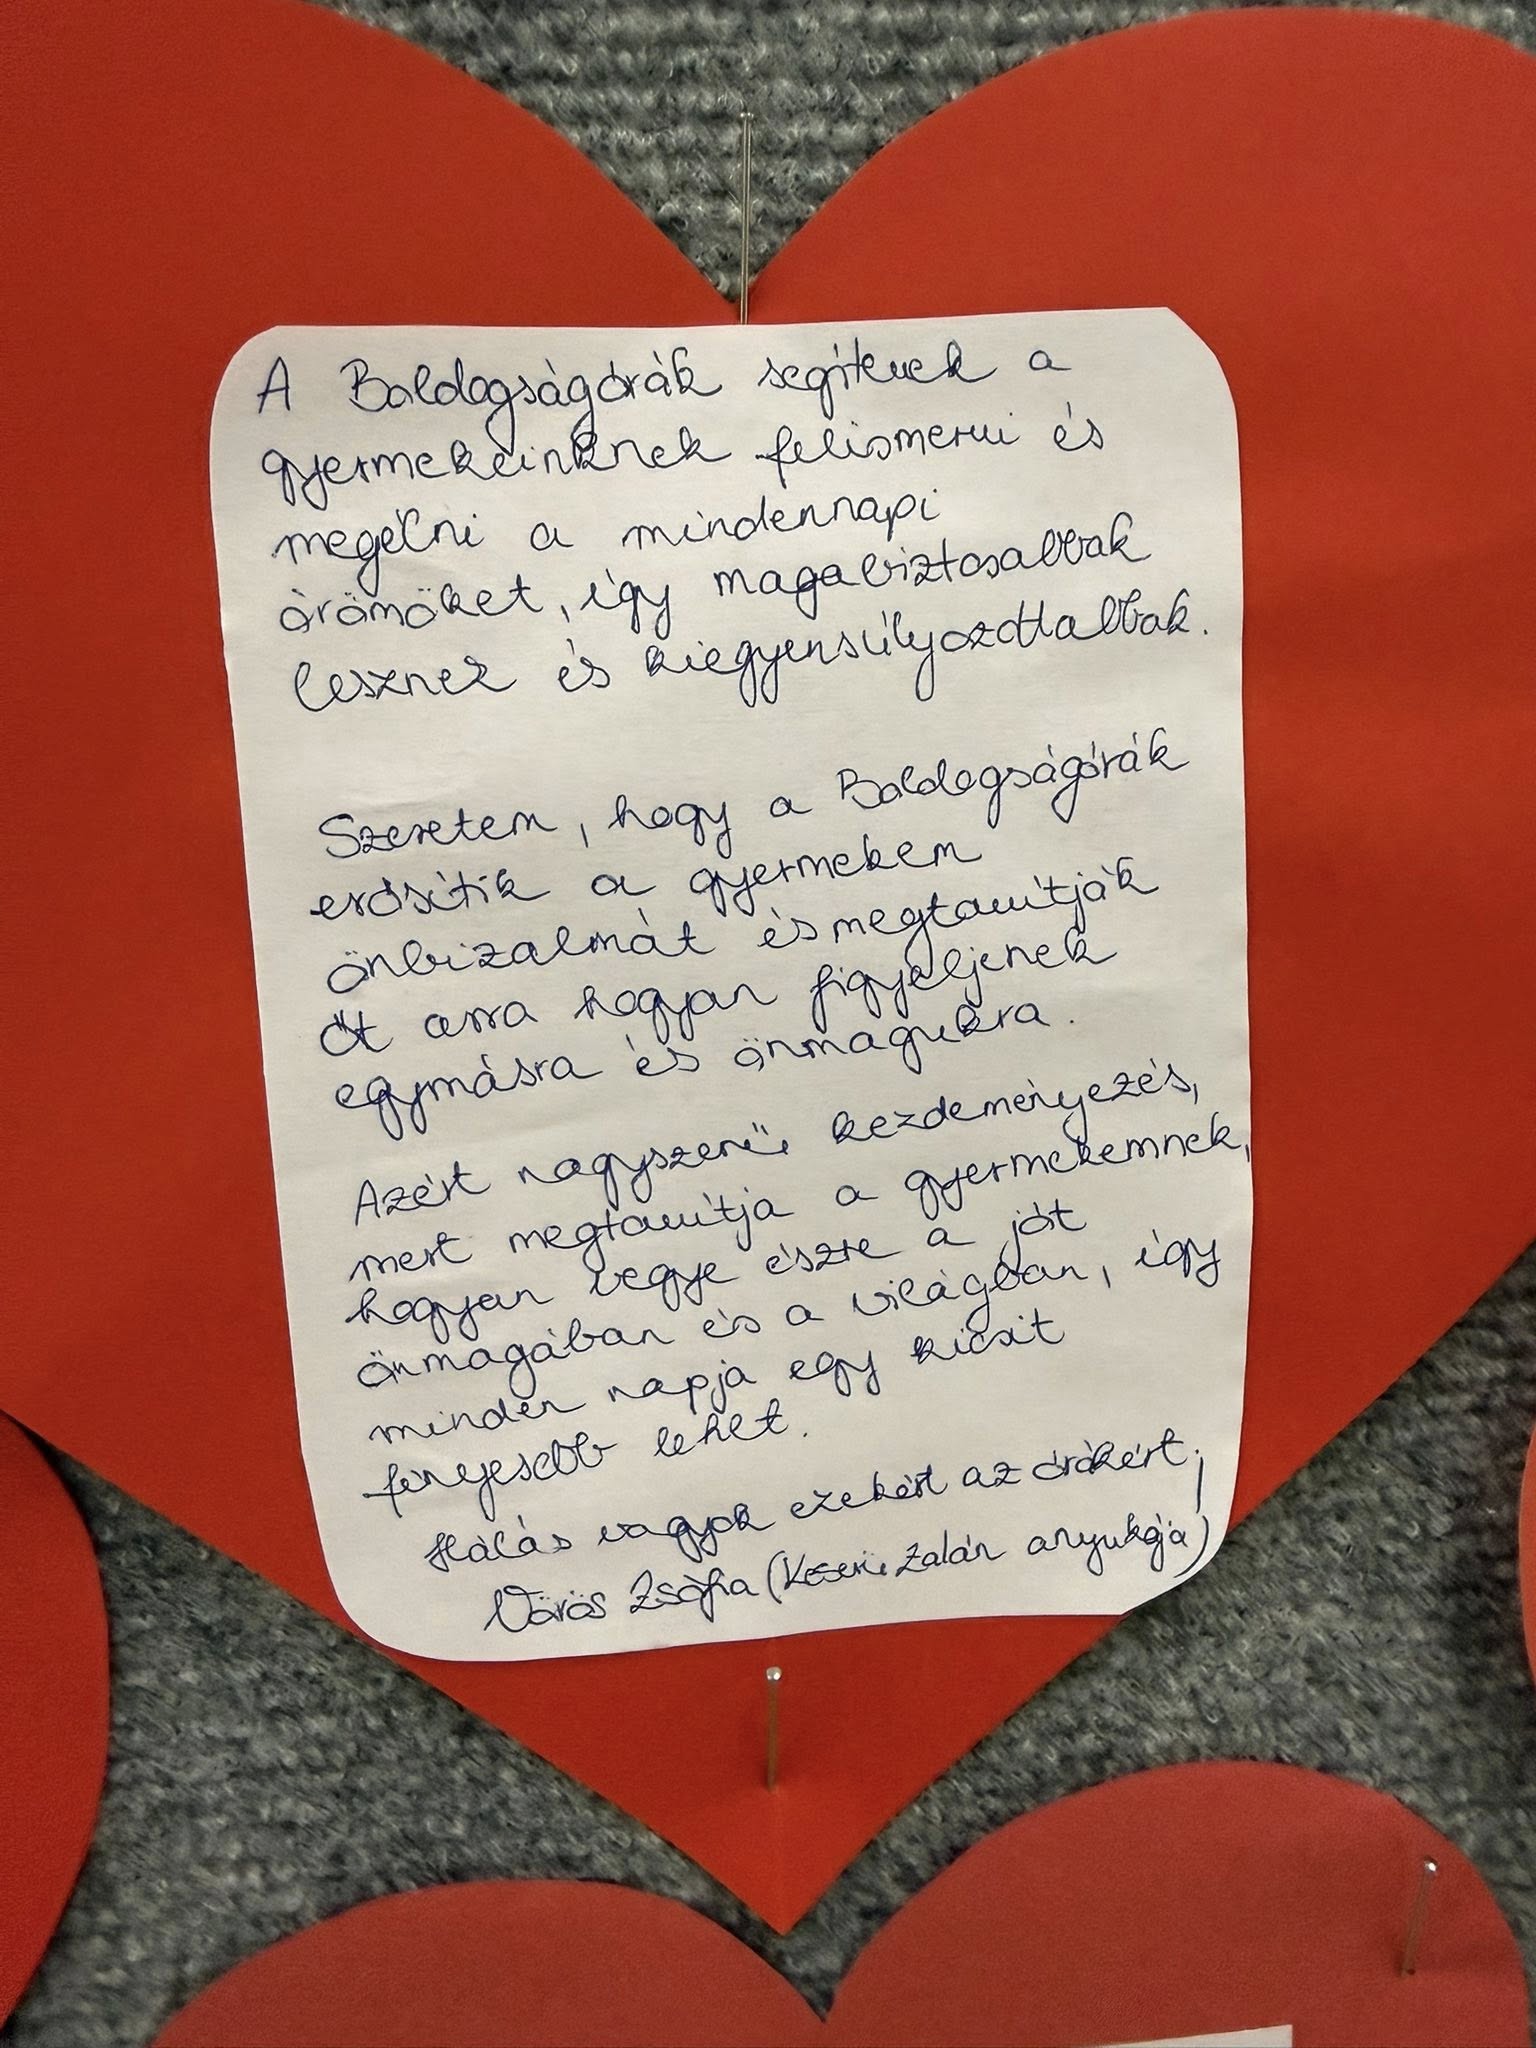 A Boldogságórák segítenek a
gyermekeinknek felismerni és
megélni a mindennapi
örömöket, így magabiztosabbak
lesznek és kiegyensúlyozottabbak.
Szeretem, hogy a Boldogságórák
erősítik a gyermekem
önbizalmát és megtanítják
őt arra hogyan figyeljenek
egymásra és önmagukra.
Azért nagyszerű kezdeményezés,
mert megtanítja a gyermekemnek,
hogyan vegye észre a jót
önmagában és a világban, így
minden napja egy kicsit
fényesebb lehet.
Hálás vagyok ezekért az órákért;
Vörös Zsófia (Keserű Zalán anyukája)